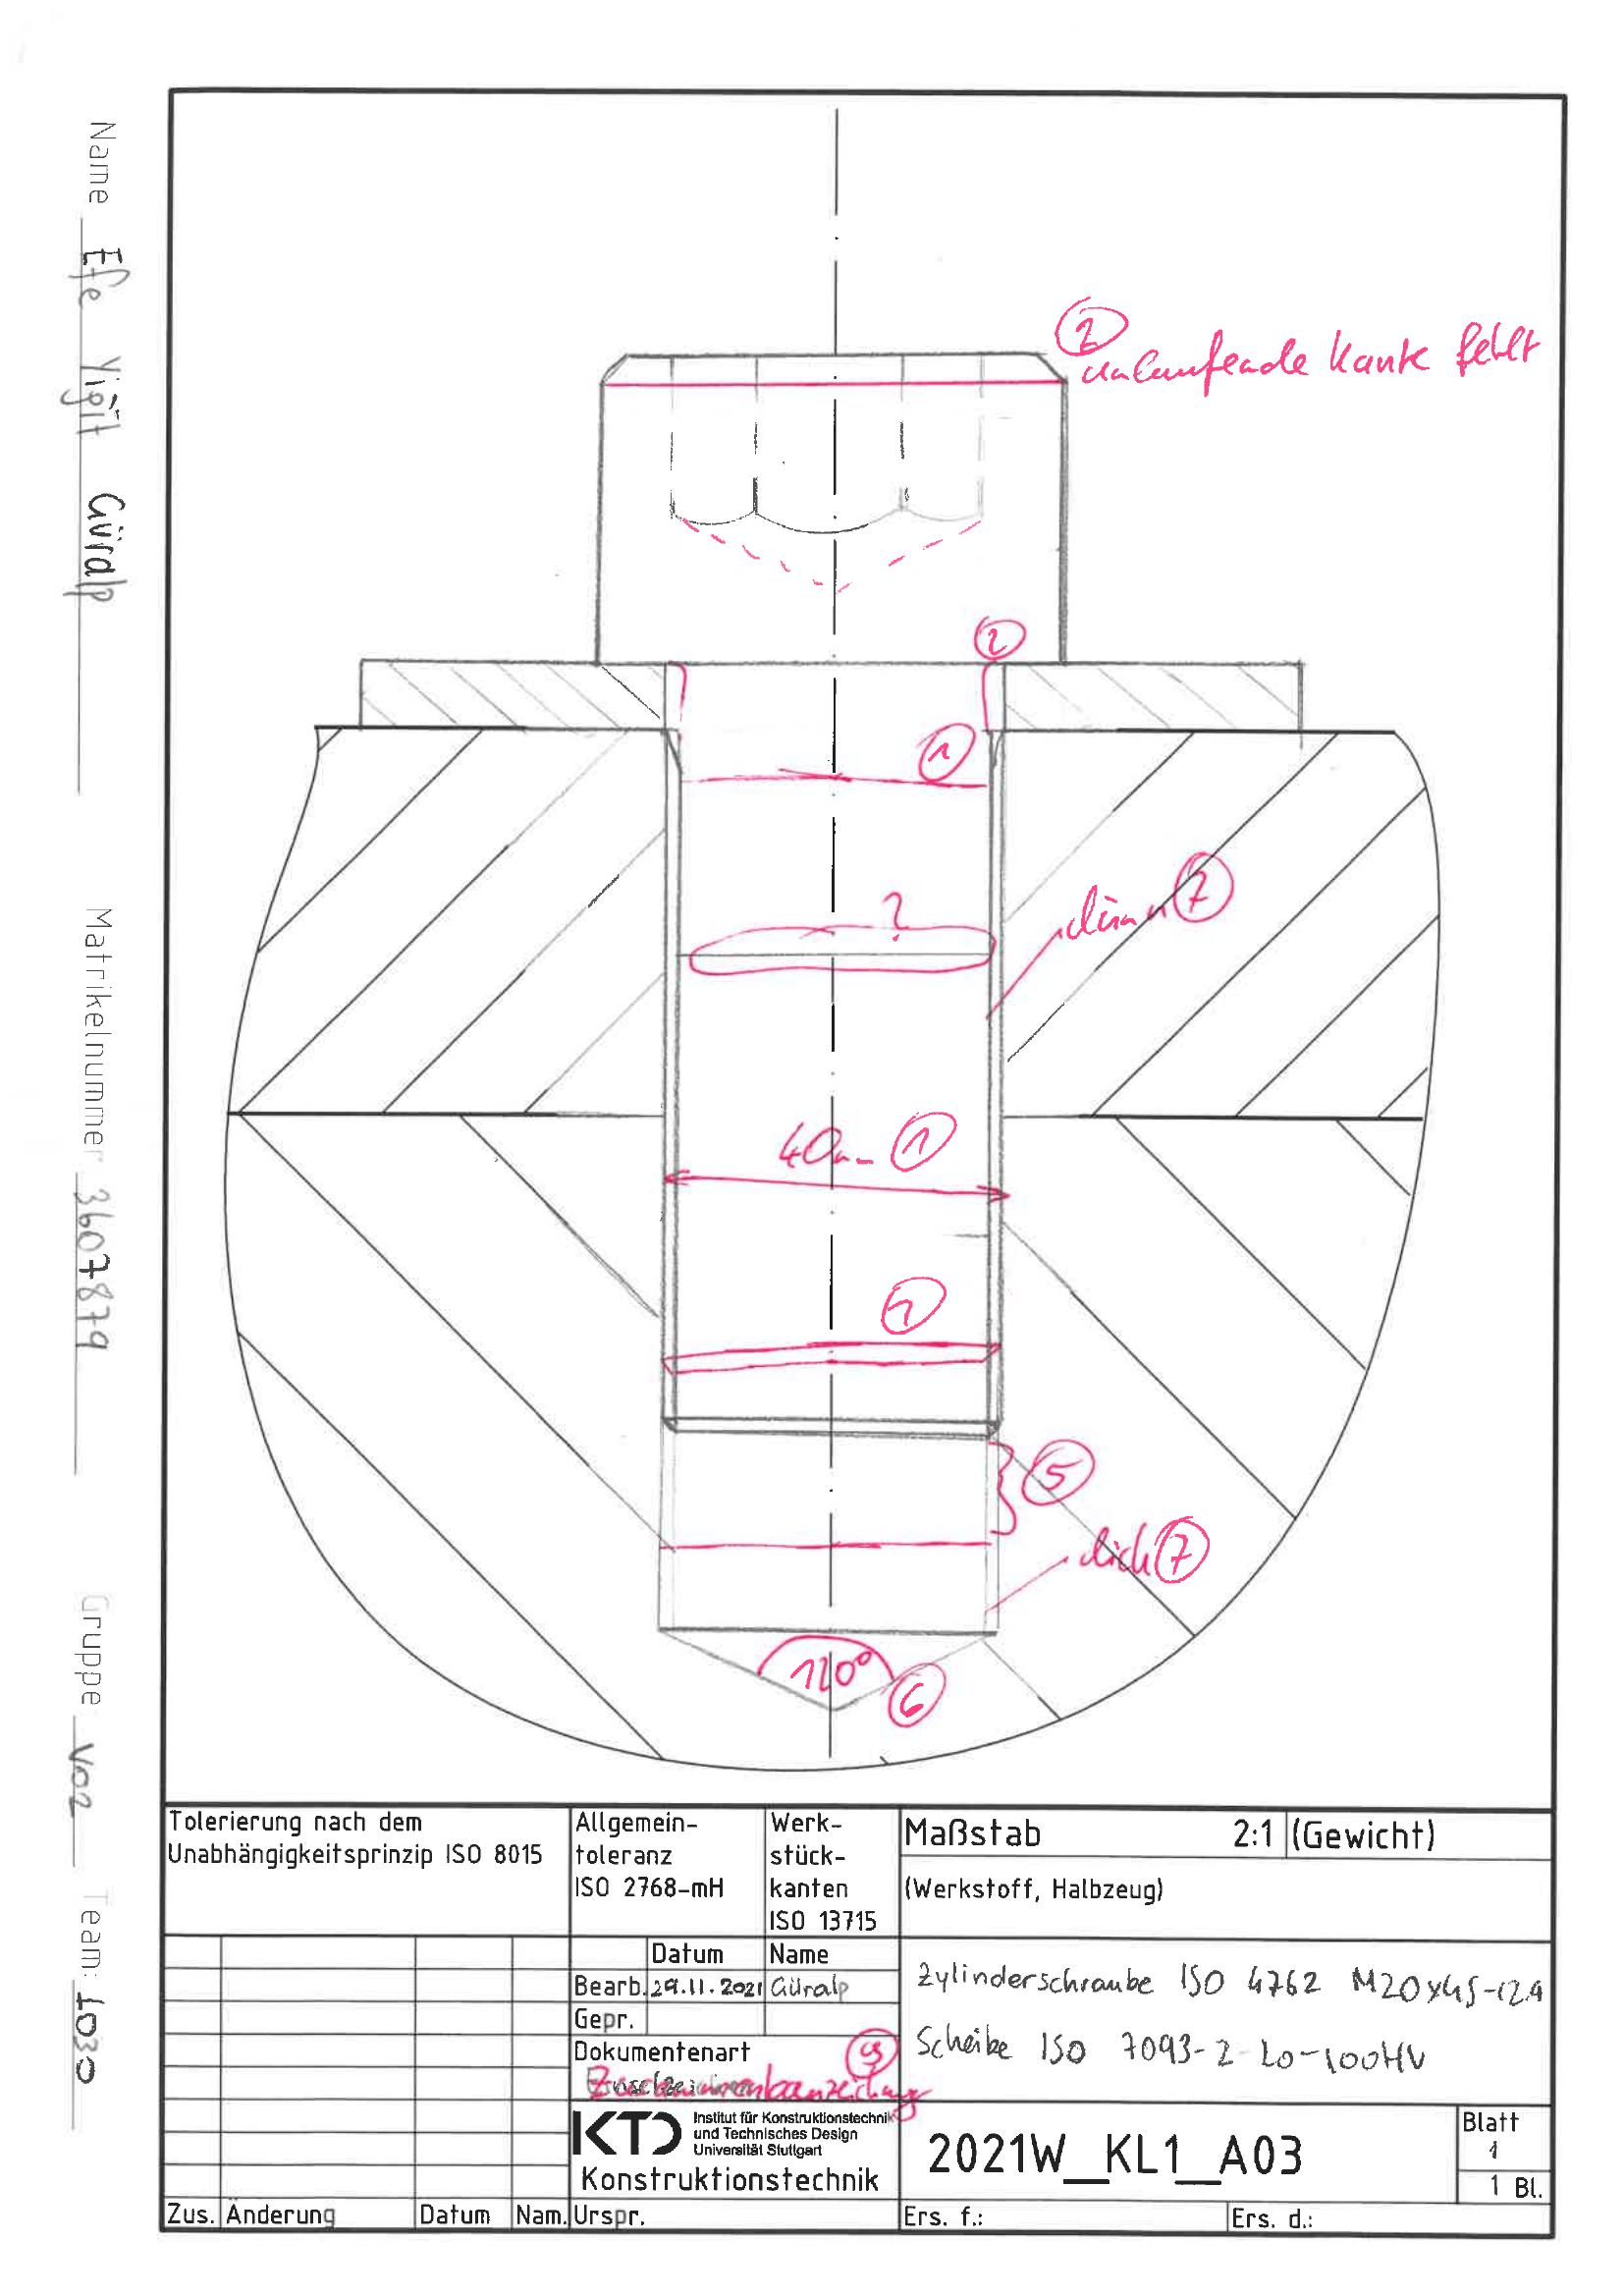 Name Efe Yiğit Güralp
Matrikelnummer 3607879
Gruppe V02
Team: f030
2
umlaufende Kante fehlt
2
1
?
dünn 7
40mm 1
1
5
dick 7
120°
6
Tolerierung nach dem
Unabhängigkeitsprinzip ISO 8015
Allgemein-
toleranz
ISO 2768-mH
Werk-
stück-
kanten
ISO 13715
Maßstab 2:1 (Gewicht)
(Werkstoff, Halbzeug)
Datum Name
Bearb. 29.11.2021 Güralp
Gepr.
Dokumentenart
Zylinderschraube ISO 4762 M20x45-12.9
Scheibe ISO 7093-2-20-100HV
KTD Institut für Konstruktionstechnik
und Technisches Design
Universität Stuttgart
Konstruktionstechnik
2021W_KL1_A03
Blatt
1
1 Bl.
Zus. Änderung Datum Nam. Urspr. Ers. f.: Ers. d.: